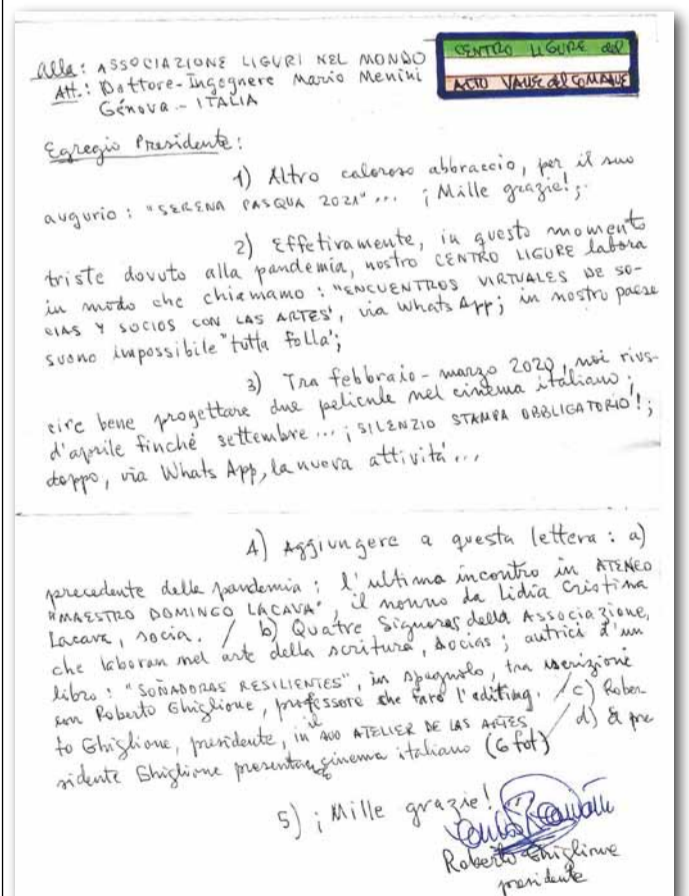 Alla: ASSOCIAZIONE LIGURI NEL MONDO
Att.: Dottore-Ingegnere Mario Menini
Génova - ITALIA
CENTRO LIGURE del
ALTO VALLE del COMAHUE
Egregio Presidente:
1) Altro caloroso abbraccio, per il suo
augurio: "SERENA PASQUA 2021"... ¡Mille grazie!;
2) Effetivamente, in questo momento
triste dovuto alla pandemia, nostro CENTRO LIGURE labora
in modo che chiamamo: "ENCUENTROS VIRTUALES DE SO-
CIAS Y SOCIOS CON LAS ARTES", via WhatsApp; in nostro paese
suono impossibile "tutta folla";
3) Tra febbraio-marzo 2020, noi rius-
cire bene progettare due pelicule nel cinema italiano;
d'aprile finché settembre... ¡SILENZIO STAMPA OBBLIGATORIO!;
doppo, via Whats App, la nuova attivitá...
4) Aggiungere a questa lettera: a)
precedente della pandemia: l'ultima incontro in ATENEO
"MAESTRO DOMINGO LACAVA", il nonno da Lidia Cristina
Lacava, socia. / b) Quatre Signoras della Associazione,
che laboran nel arte della scritura, socias; autrici d'un
libro: "SOÑADORAS RESILIENTES", in spagnolo, tra iscrizione
con Roberto Ghiglione, professore che faro l'editing. / c) Rober-
to Ghiglione, presidente, in il suo ATELIER DE LAS ARTES / d) Il pre
sidente Ghiglione presentando cinema italiano (6 fot)
5) ¡Mille grazie!
Roberto Ghiglione
presidente